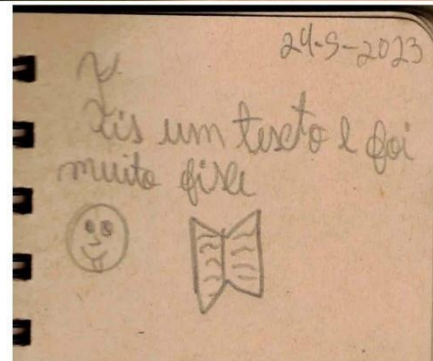 24-5-2023
Y.
Fis um texto e foi
muito fisil